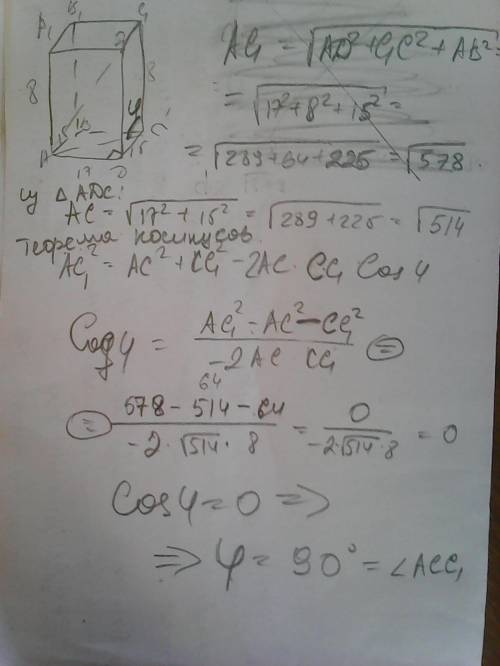 B₁ C₁
A₁ D₁
8 8
φ
A C
17 D 15
AC₁ = √AD²+C₁C²+AB² =
= √17²+8²+15² =
= √289+64+225 = √578.
из △ADC:
AC = √17²+15² = √289+225 = √514
Теорема косинусов.
AC₁² = AC² + CC₁² - 2AC · CC₁ Cos φ
Cos φ = AC₁² - AC² - CC₁² / -2 AC CC₁ =
64
= 578 - 514 - 64 / -2 · √514 · 8 = 0 / -2·√514·8 = 0
Cos φ = 0 =>
=> φ = 90° = ∠ACC₁